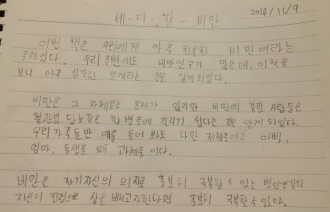 2014/11/9
세-더-잘-비만
이번 책은 우리에게 아주 친숙한 비만이라는
주제였다. 우리 주변에도 비만인구가 많은데, 이 책을
보니 아주 심각한 문제라는 것을 알게 되었다.
비만은 그 자체로도 문제가 있지만 비만에 걸린 사람들은
혈관병 당뇨 등 각 병에 걸리기 쉽다는 것을 알게 되었다.
우리가족들만 예를 들어 봐도 나만 저체중이고 아빠,
엄마, 동생은 모두 과체중이다.
비만은 자기자신의 의지로 충분히 극복할 수 있는 병인것같다
자신이 진정으로 살을 빼고자한다면 충분히 극복할 수 있다.